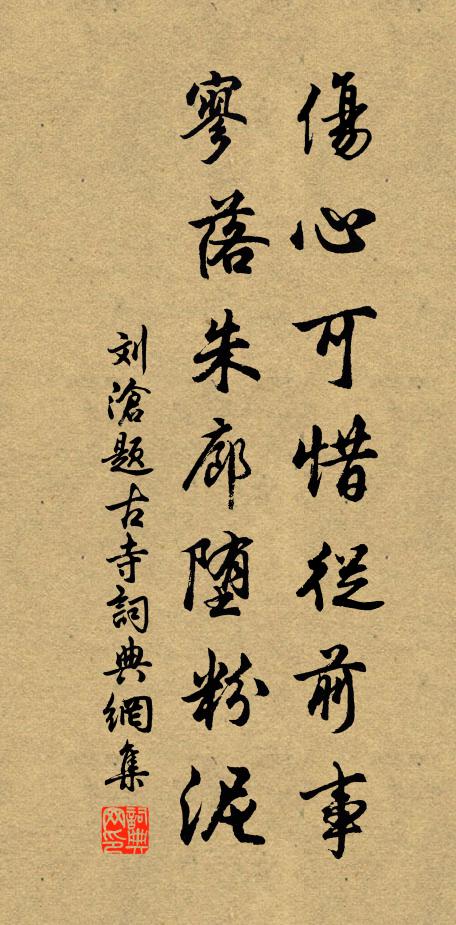 傷心可惜從前事
寥落朱廊墮粉泥
刘滄题古寺詞典網集
詞典网印